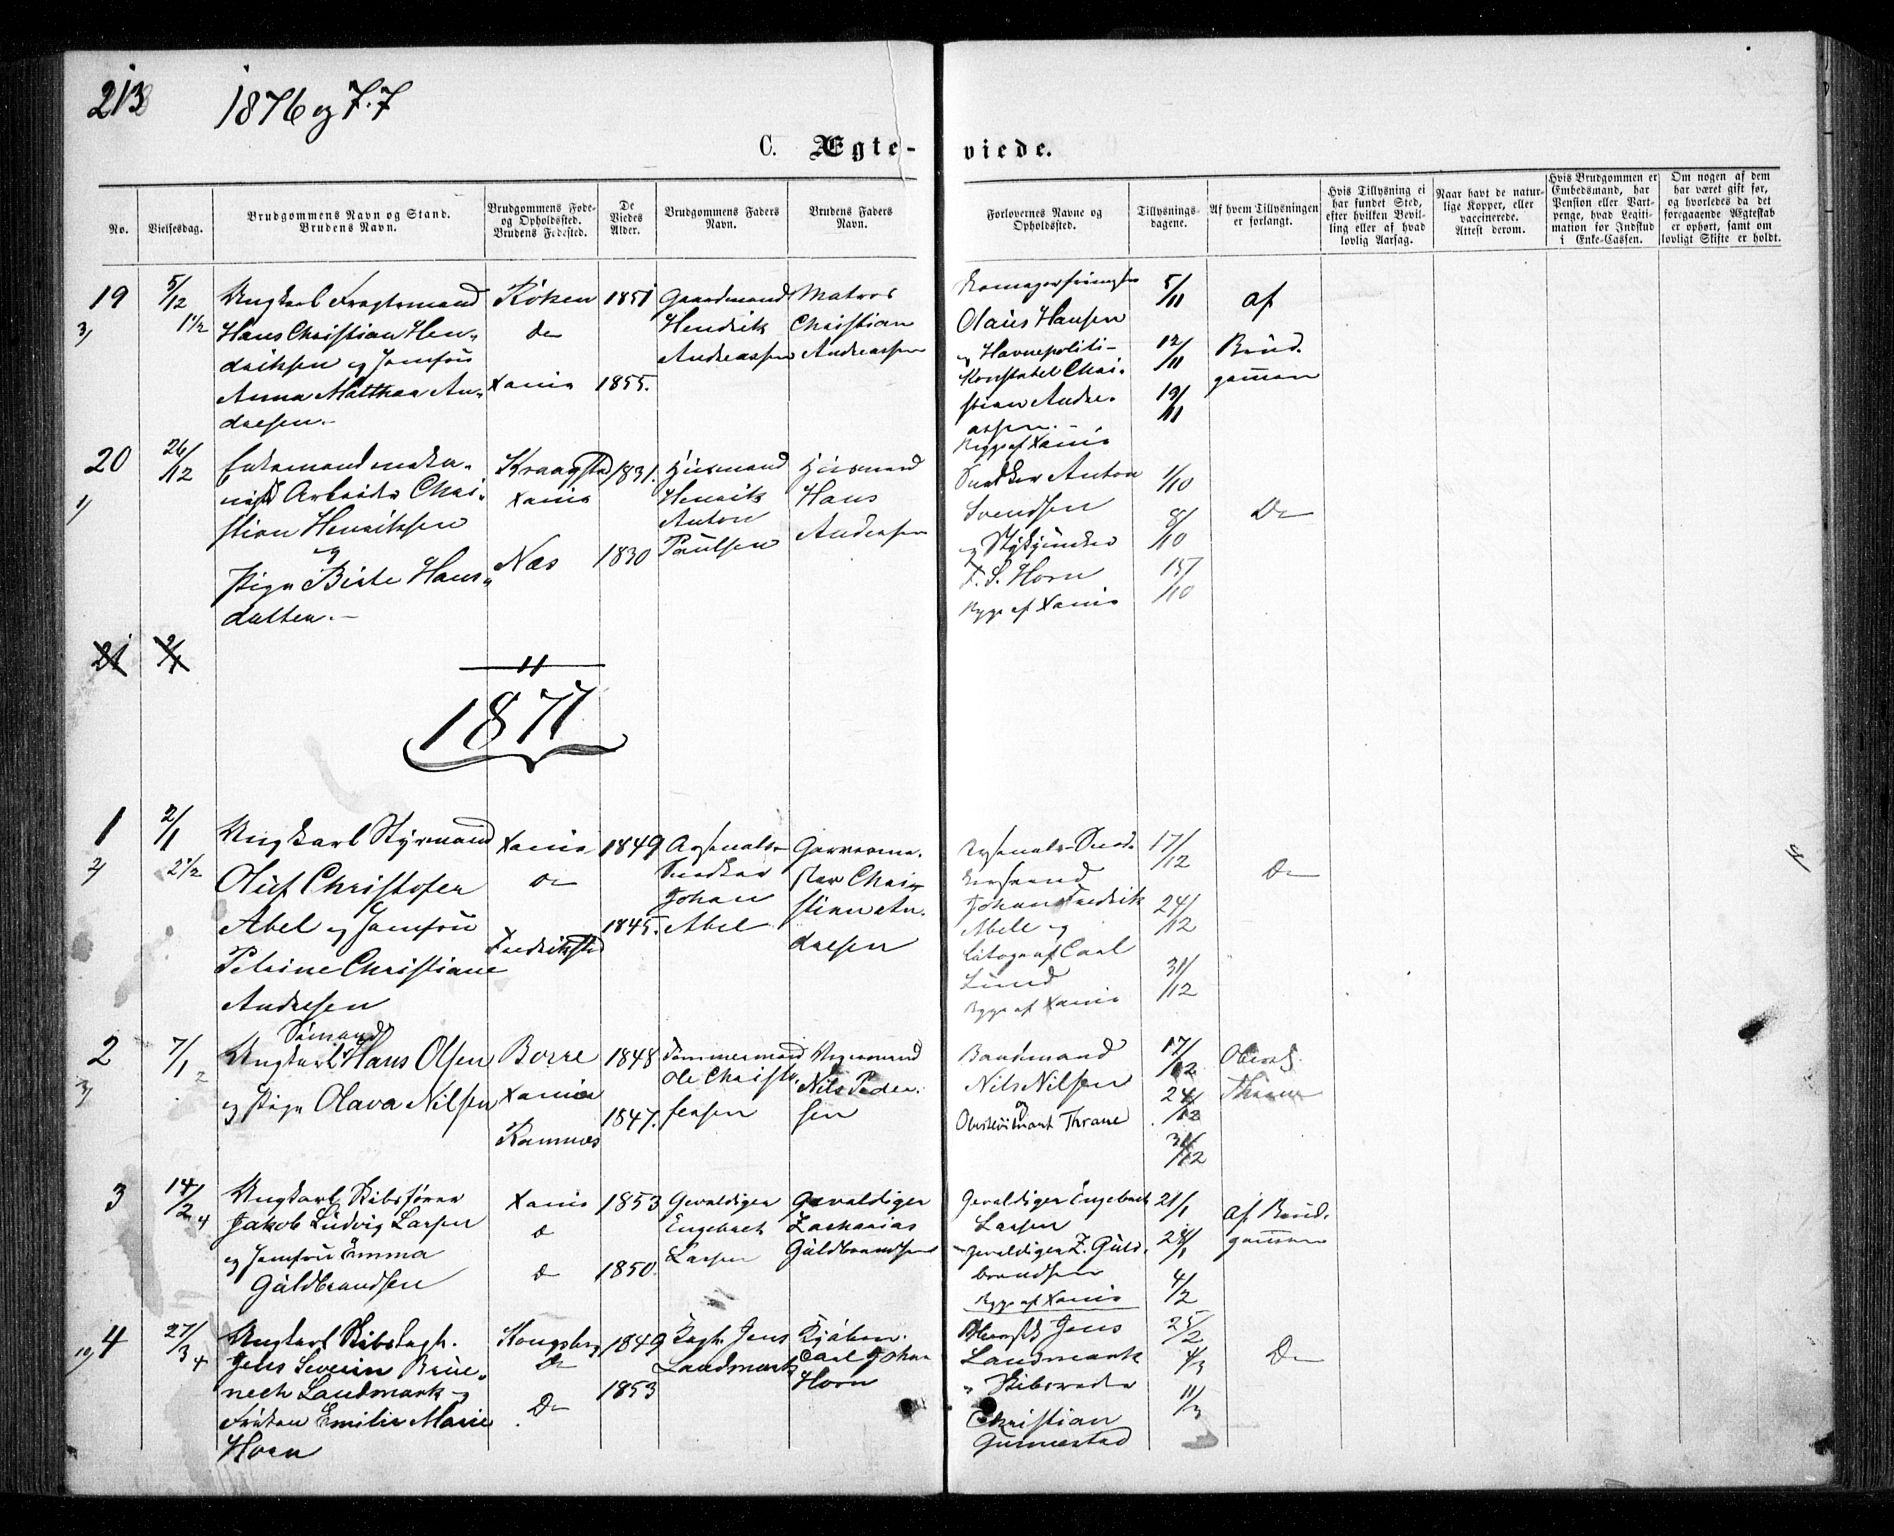 213 1876 og 77
C. Ægteviede.
No.
Vielsesdag.
Brudgommens Navn og Stand.
Brudens Navn.
Brudgommens Føde-
og Opholdssted.
Brudens Fødested.
De
Viedes
Alder.
Brudgommens Faders
Navn.
Brudens Faders
Navn.
Forlovernes Navne og
Opholdssted.
Tillysnings-
dagene.
Af hvem Tillysningen
er forlangt.
Hvis Tillysning ei
har fundet Sted,
efter hvilken Bevil-
ling eller af hvad
lovlig Aarsag.
Naar havt de natur-
lige Kopper, eller
vaccinerede.
Attest derom.
Hvis Brudgommen er
Embedsmand, har
Pension eller Vart-
penge, hvad Legiti-
mation for Indskud
i Enke-Cassen.
Om nogen af dem
har været gift før,
og hvorledes da det
foregaaende Ægteskab
er ophørt, samt om
lovligt Skifte er holdt.
19
3/
5/12
1 1/2
Ungkarl Fragtemand
Hans Christian Hen-
driksen og Jomfru
Anna Matthea An-
dresen.
Røken
do
Xania
1851
1855.
Gaardmand
Hendrik
Andreassen
Matros
Christian
Andreassen
Olaus Hansen
og Havnepoliti-
Konstabel Chri-
stian Andre-
assen.
Begge af Xania
5/11
12/11
19/11
af
Brud-
gommen
20
1/
26/12
Enkemand
Arbeider Chri-
stian Henriksen
og
Pige Birte Hans-
datter.
Kraagstad
Xania
Næs
1831.
1830
Huusmand
Henrik
Anton
Paulsen
Huusmand
Hans
Andersen
Snedker Anton
Svendsen
og Stykjunker
F. S. Horn
Begge af Xania
1/10
8/10
15/10
Do
21 2/1
1877
1
2/
2/1
2 1/2
Ungkarl Styrmand
Oluf Christofer
Abel og Jomfru
Petrine Christiane
Andresen
Xania
do
Fredrikstad
1849
1845.
Arsenals-
Snedker
Johan
Abel
Garverme-
ster Chri-
stian An-
dresen
Arsenals-Sned-
kersvend
Johan Fredrik
Abell og
Litograf Carl
Lund
Begge af Xania
17/12
24/12
31/12
Do
2
3/
7/1
2
Sømand
Ungkarl Hans Olsen
og Pige Olava Nilsen
Borre
Xania
Ramnes
1848
1847.
Tømmermand
Ole Christo-
fersen
Nils Peder-
sen
Baadsmand
Nils Nilsen
og
Oberstløitnant Thrane
17/12
24/12
31/12
Oberstl.
Thrane
3
14/2
4
Ungkarl Skibsfører
Jakob Ludvig Larsen
og Jomfru Emma
Guldbrandsen
Xania
do
do
1853
1850.
Gevaldiger
Engebret
Larsen
Gevaldiger
Zacharias
Guldbrandsen
Gevaldiger Engebret
Larsen
Gevaldiger Z. Guld-
brandsen
Begge af Xania
21/1
28/1
4/2
af Brud-
gommen
4
27/3
4
Ungkarl Skibskapt.
Jens Severin Brue-
nech Landmark og
Frøken Emilie Marie
Horn
Kongsberg
Do
Do
1849
1853
Kapt. Jens
Landmark
Kjøbm.
Carl Johan
Horn
Jens
Landmark
og Skibsreder
Christian
Gunnestad
25/2
4/3
11/3
Do